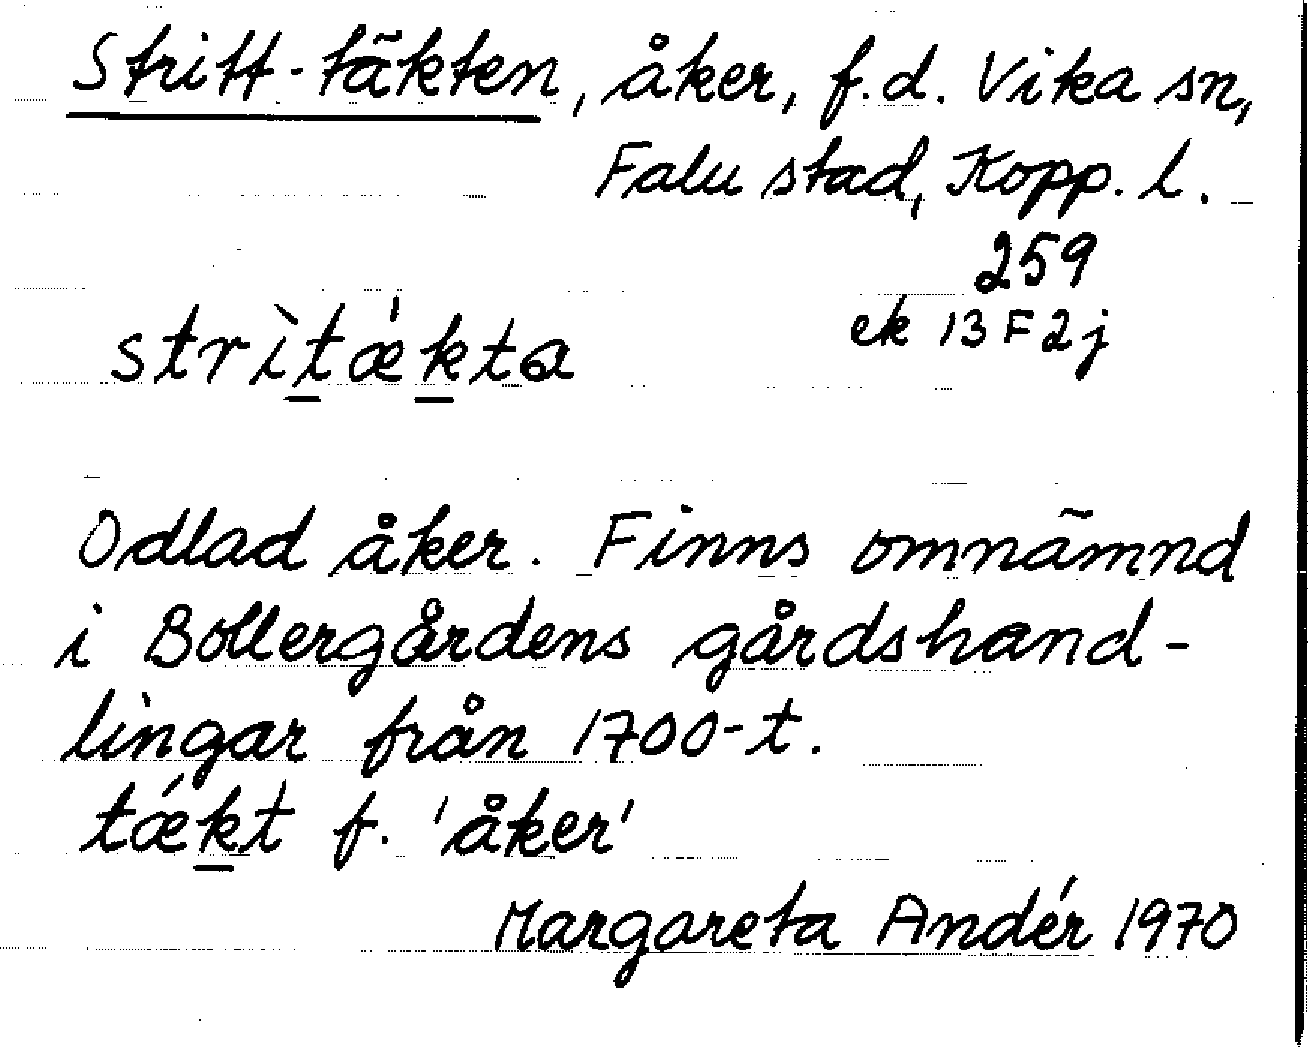 Stritt-täkten, åker, f.d. Vika sn,
Falu stad, Kopp. l.
259
ek 13 F 2j
strìtǽkta
Odlad åker. Finns omnämnd
i Bollergårdens gårdshand-
lingar från 1700-t.
tǽkt f. 'åker'
Margareta Andér 1970